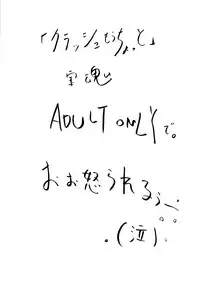 「クラッシュもうちょっと」
宝魂!!
ADULT ONLYで。
おお怒られるぅー。。
。(泣)。